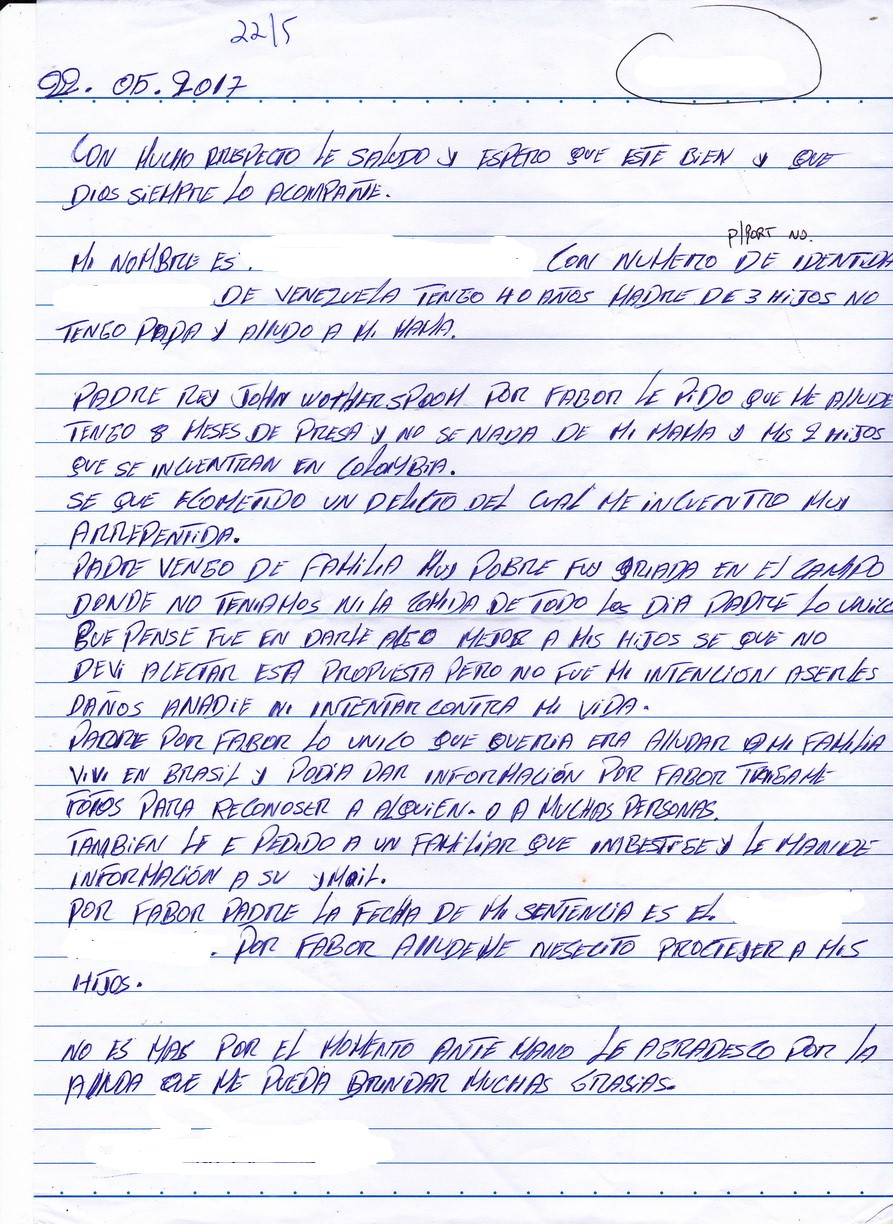 22/5
22. 05. 2017
CON MUCHO RRESPECTO LE SALUDO Y ESPERO QUE ESTE BIEN Y QUE
DIOS SIEMPRE LO ACOMPAÑE.
P/PORT NO.
MI NOMBRE ES. CON NUMERO DE IDENTIDA
DE VENEZUELA TENGO 40 AÑOS MADRE DE 3 HIJOS NO
TENGO PAPA Y AlludO A MI MAMA.
PADRE REY JOHN WOTHERSPOOM POR FABOR LE PIDO QUE ME AllUDE
TENGO 8 MESES DE PRESA Y NO SE NADA DE MI MAMA Y MIS 2 HIJOS
QUE SE INCUENTRAN EN COLOMBIA.
SE QUE ECOMETIDO UN DELICTO DEL CUAL ME INCUENTRO MUY
ARREPENTIDA.
PADRE VENGO DE FAMILIA MUY POBRE FUY GRIADA EN EL CAMPO
DONDE NO TENIAMOS NI LA COMIDA DE TODO LOS DIA PADRE LO UNICO
QUE PENSE FUE EN DARLE ALGO MEJOR A MIS HIJOS SE QUE NO
DEVI ACECTAR ESTA PROPUESTA PERO NO FUE MI INTENCION ASERLES
DAÑOS ANADIE NI INTENTAR CONTRA MI VIDA.
PADRE POR FABOR LO UNICO QUE QUERIA ERA AllUDAR A MI FAMILIA
VIVI EN BRASIL Y PODIA DAR INFORMACIÓN POR FABOR TRAIGAME
FOTOS PARA RECONOSER A ALQUIEN. O A MUCHAS PERSONAS.
TAMBIEN LE E PEDIDO A UN FAMILIAR QUE IMBESTIGE Y LE MANDE
INFORMACIÓN A SU YMAIL.
POR FABOR PADRE LA FECHA DE MI SENTENCIA ES EL.
. POR FABOR AllUDEME NESECITO PROCTEJER A MIS
HIJOS.
NO ES MAS POR EL MOMENTO ANTE MANO LE AGRADESCO POR LA
AllUDA QUE ME PUEDA BRINDAR MUCHAS GRASIAS.